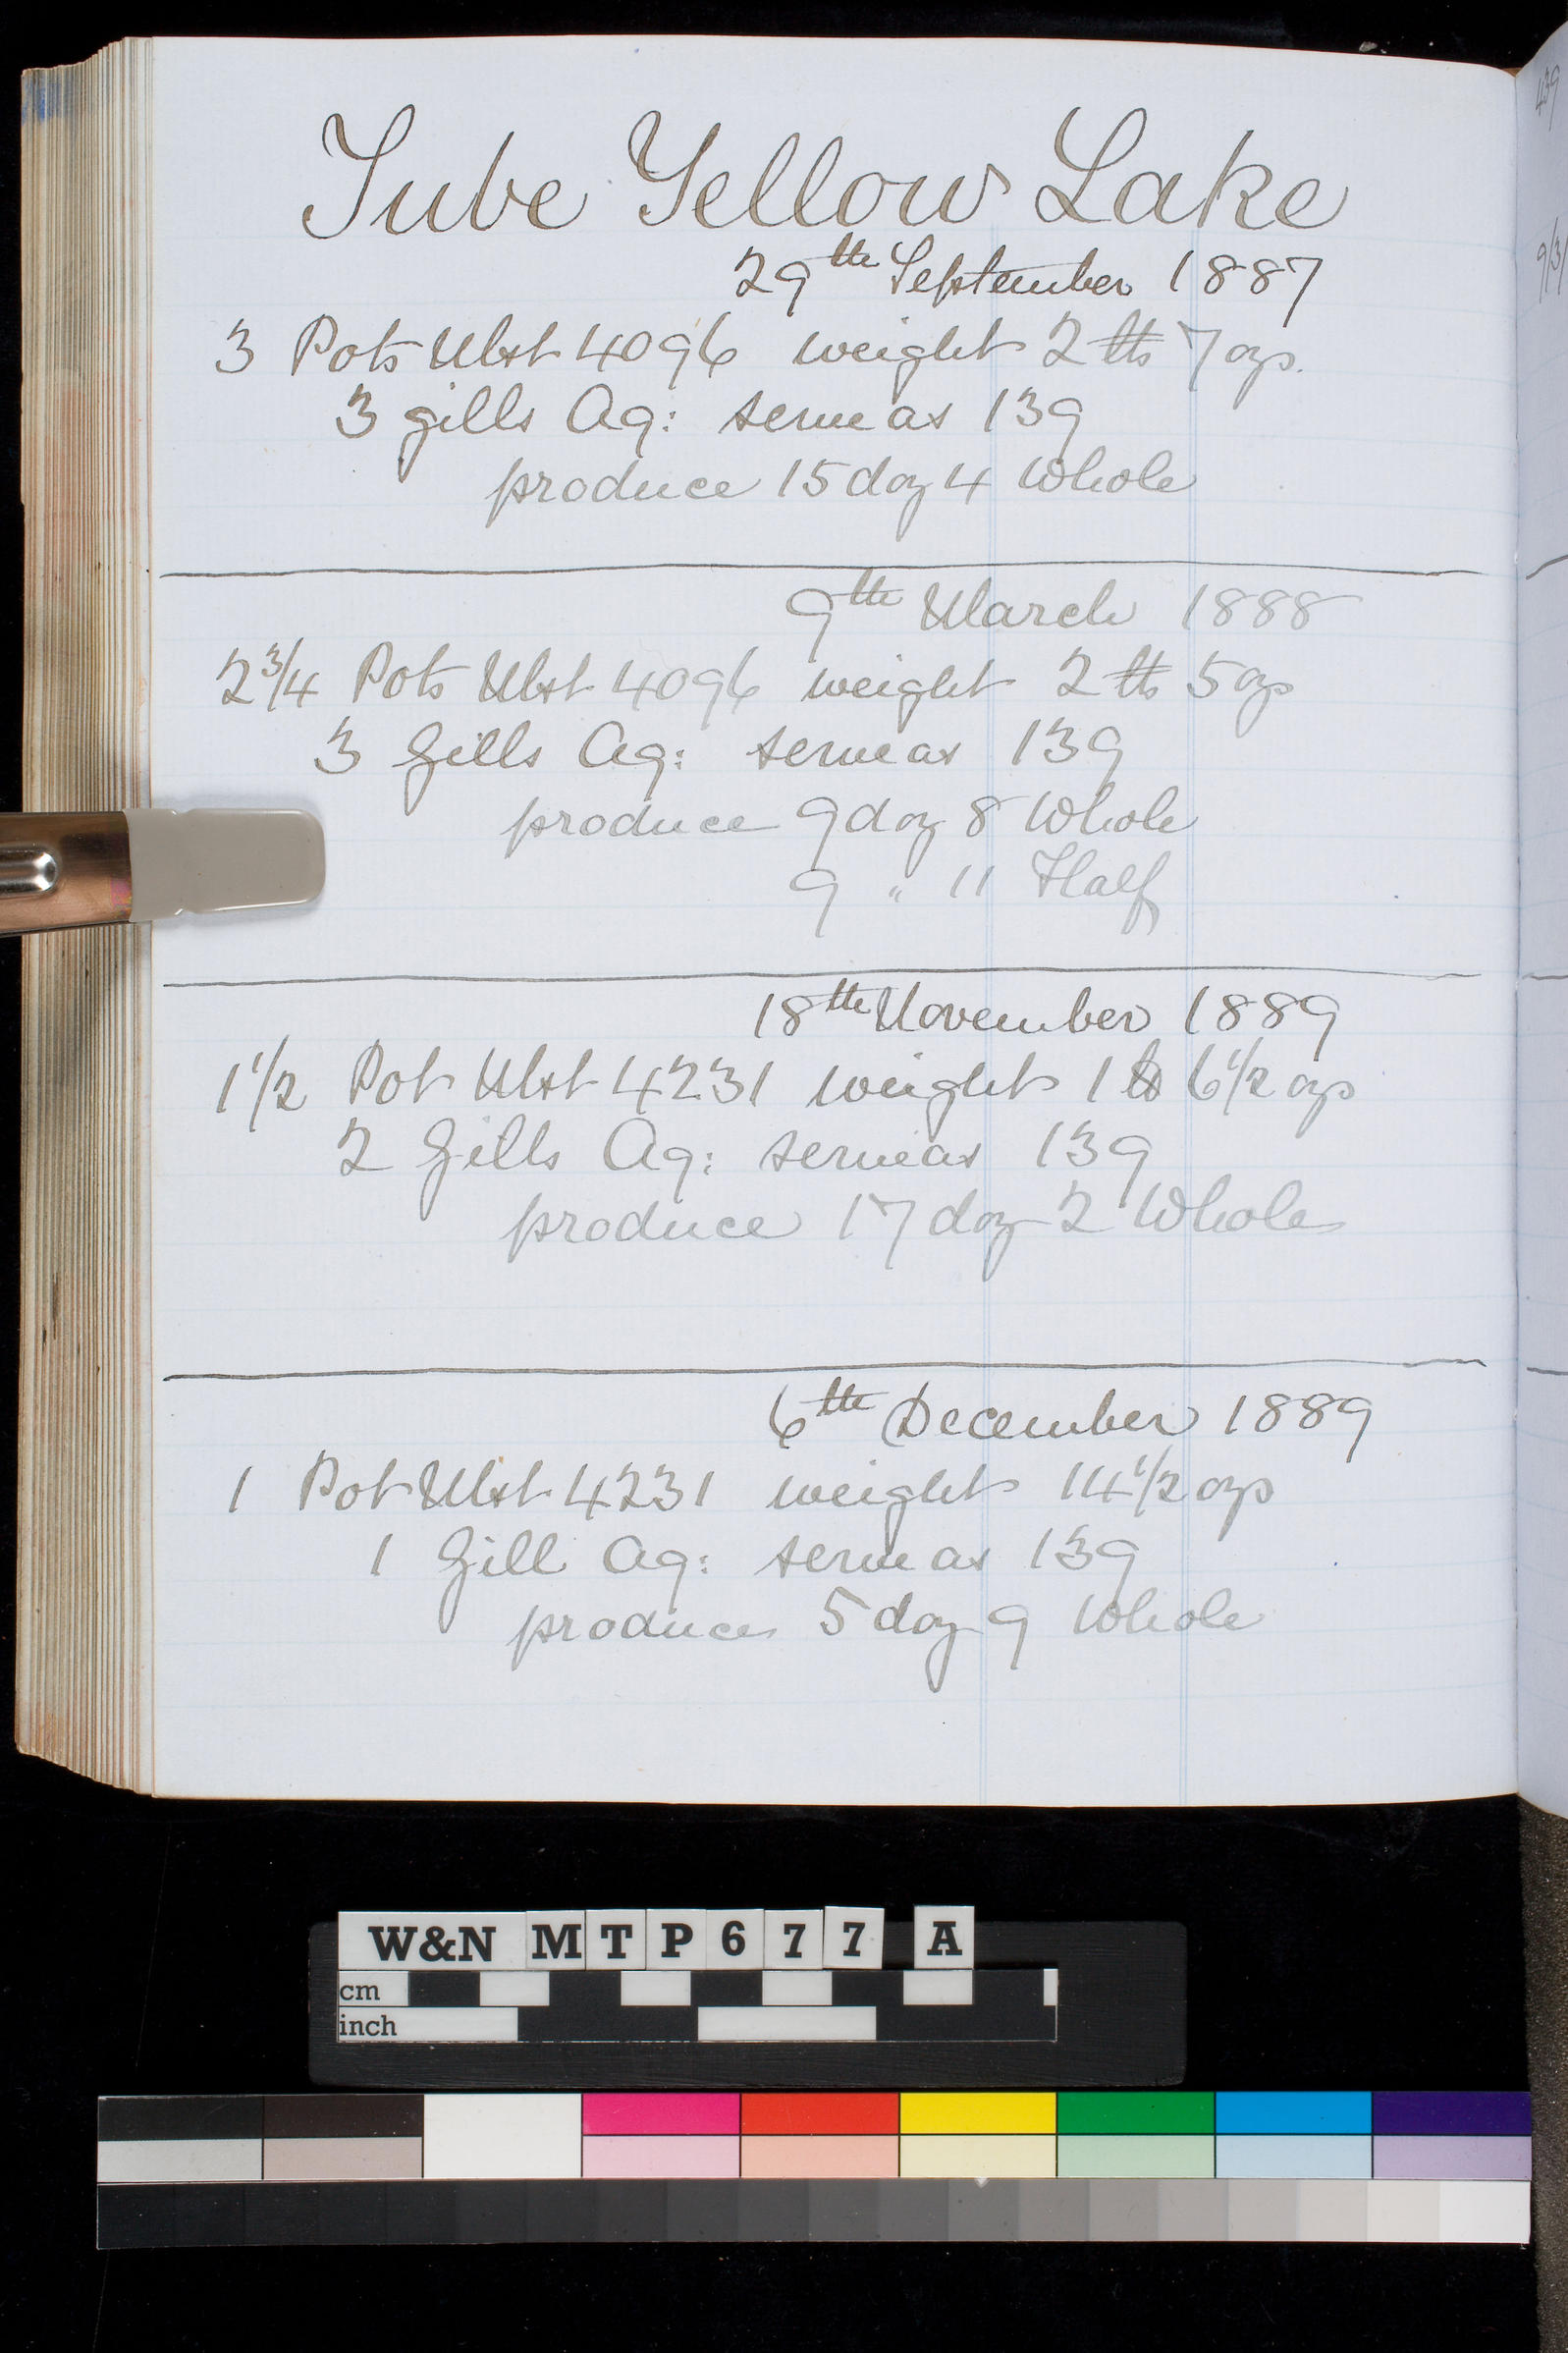 Tube Yellow Lake
29th September 1887
3 Pots Mxt 4096 weight 2 lbs 7 ozs.
3 gills Aq: serue as 139
produce 15 doz 4 Whole
9th March 1888
2 3/4 Pots Mxt 4096 weight 2 lbs 5 ozs
3 Gills Aq: serue as 139
produce 9 doz 8 Whole
9 " 11 Half
18th November 1889
1 1/2 Pot Mxt 4231 weight 1 lb 6 1/2 ozs
2 Gills Aq: serue as 139
produce 17 doz 2 Whole
6th December 1889
1 Pot Mxt 4231 weight 14 1/2 ozs
1 Gill Aq: serue as 139
produce 5 doz 9 Whole
439
W&N MTP677 A
cm
inch